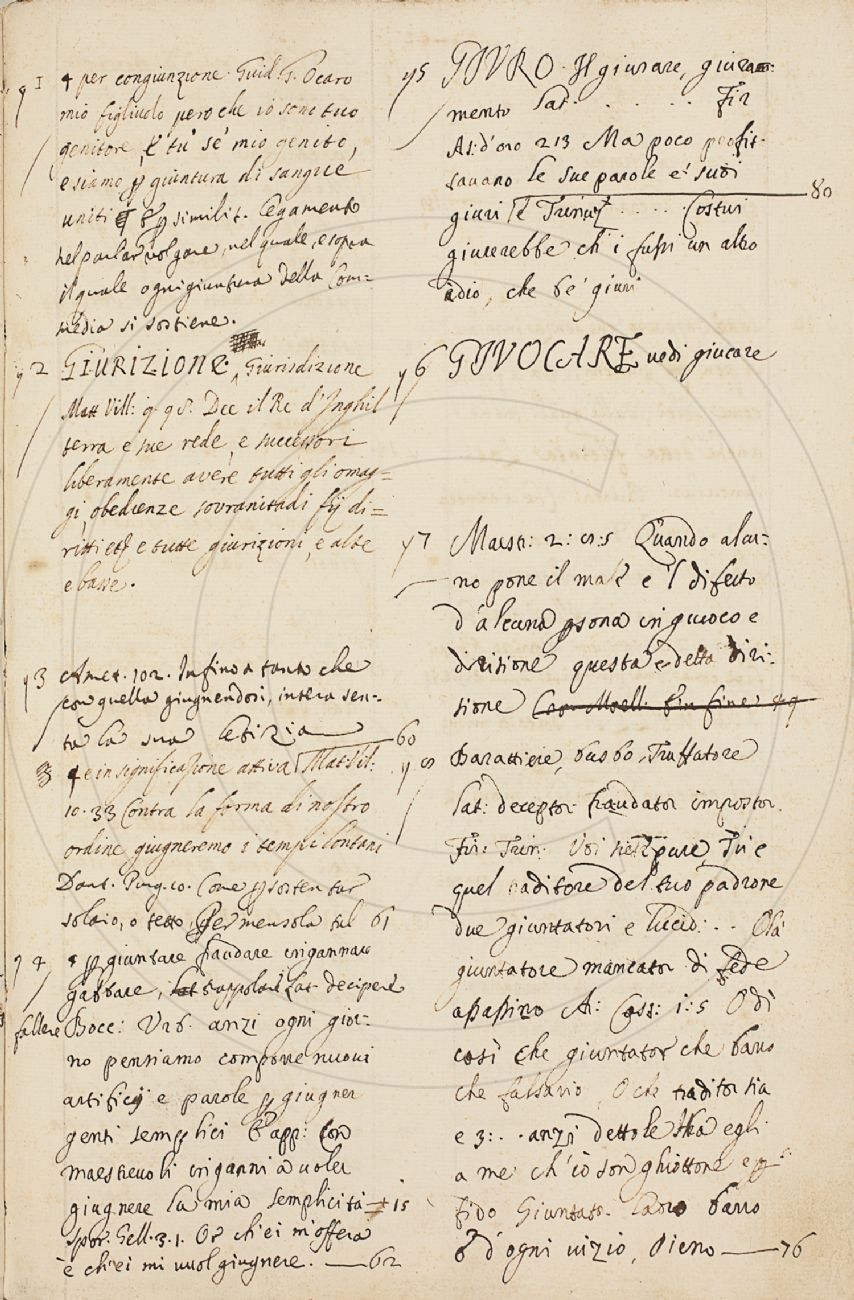 91 per congiunzione Guid. G. O caro
mio figliuolo pero che io sono tuo
genitore, e tu se' mio genito,
e siamo p giuntura di sangue
uniti similit. legamento
nel parlar volgare, nel quale, e sopra
il quale ogni giuntura della Com=
media si sostiene.
92 GIURIZIONE. Giurisdizione
Matt Vill: 9. 98. Dee il Re d'Inghil
terra e sue rede, e successori
liberamente avere tutti gli omag=
gi, obedienze sovranitadi di=
ritti e tutte giurizioni, e alte
e basse.
93 Amet. 102. Infino a tanto che
con quella giugnendosi, intera sen-
ta la sua letizia 60
3 e in significazione attiva Mat Vil:
10. 33 Contra la forma di nostro
ordine giugneremo i tempi lontani
Dant. Purg. 10. Come p sostentar
solaio, o tetto, Per mensola tal 61
94 p giuntare fraudare ingannare
gabbare, trappolare Lat. decipere
fallere Bocc: V26. anzi ogni gior-
no pensiamo comporre nuovi
artificij e parole p giugner
genti semplici E app: con
maestrevoli inganni a voler
giugnere la mia semplicità 15
spor. Gell. 3. 1. O ch'ei m'offera
e ch'ei mi vuol giugnere. 62
95 GIURO. Il giurare, giura=
mento Lat. . . . . . Fir
As: d'oro 213 Ma poco profit-
tavano le sue parole e' suoi 80
giuri e Trinuz . . . . . Costui
giurerebbe ch'i fussi un altro
adio, che be' giuri
96 GIUOCARE vedi giucare
97 Maestr: 2: 8: 5 Quando alcu-
no pone il male e 'l difetto
d'alcuna psona in giuoco e
dirisione questa è detta diri-
sione
98 Barattiere, barbo, Truffatore
Lat: deceptor fraudator impostor.
Fir: Trin: Voi pure, Tu e
quel traditore del tuo padrone
due giuntatori e Lucid: . . Olà
giuntatore mancator di fede
assassino Ar: Cass: 1: 5 Odi
così che giuntator che barro
che falsario, O che traditor sia
e 3: . . anzi detto le ha egli
a me ch'io son ghiottone e
fido Giuntator Ladro barro
e d'ogni vizio, pieno 76